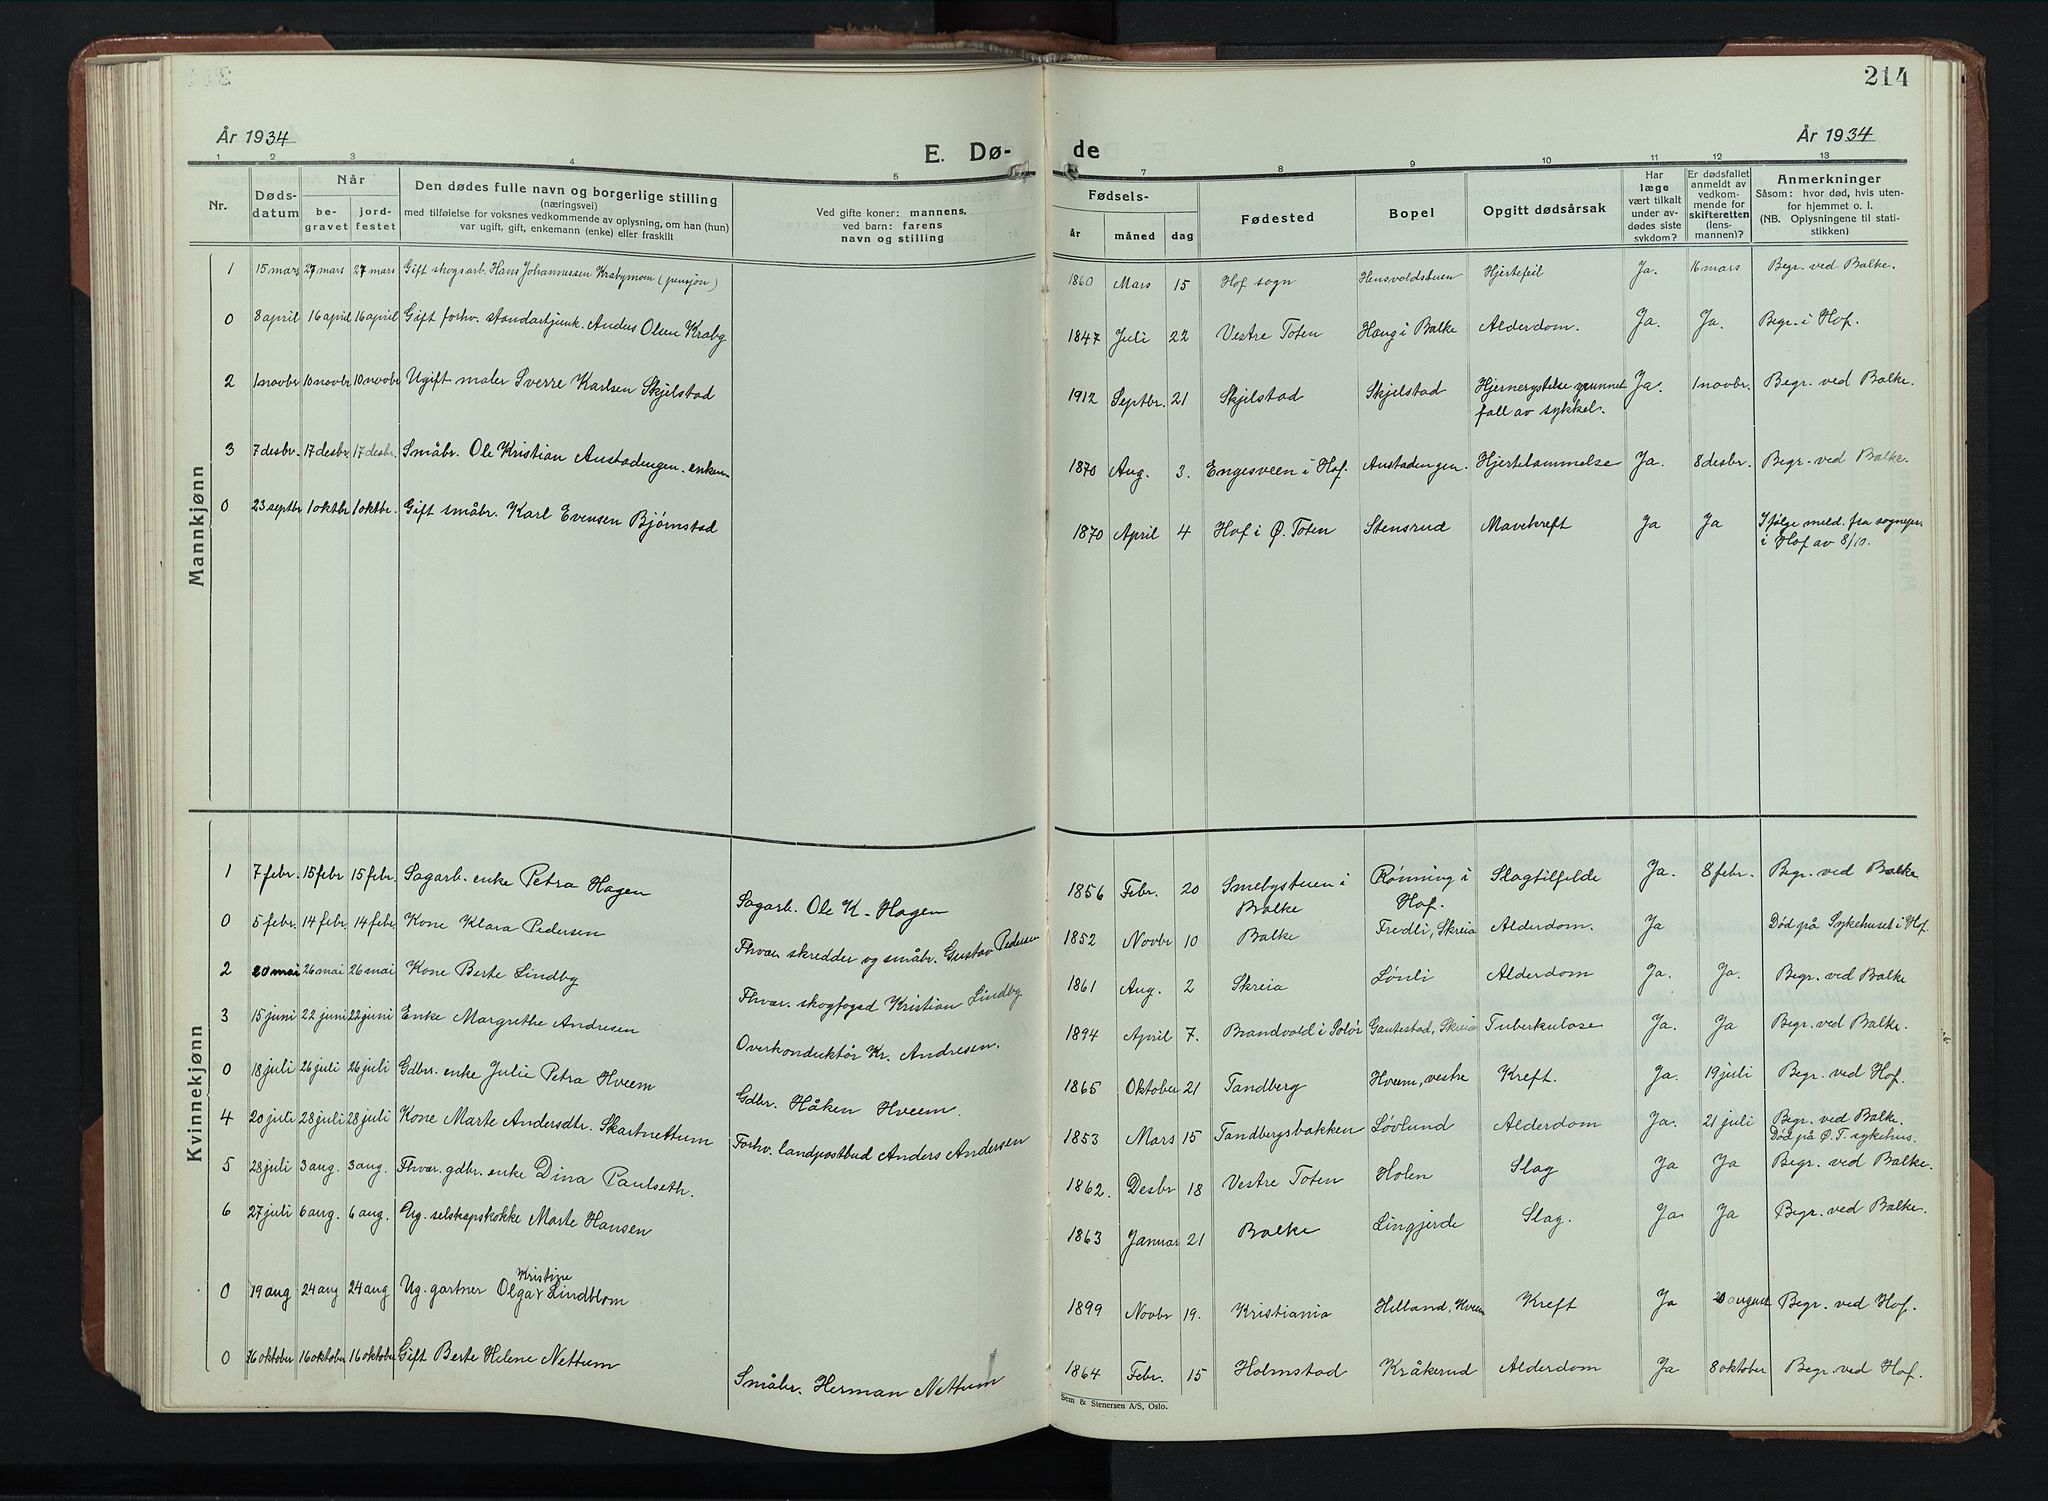 214
År 1934
E. Døde
År 1934
1 2 3 4 5 7 8 9 10 11 12 13
Nr.
Døds-
datum
Når
be-
gravet
jord-
festet
Den dødes fulle navn og borgerlige stilling
(næringsvei)
med tilføielse for voksnes vedkommende av oplysning, om han (hun)
var ugift, gift, enkemann (enke) eller fraskilt
Ved gifte koner: mannens,
ved barn: farens
navn og stilling
Fødsels-
år måned dag
Fødested
Bopel
Opgitt dødsårsak
Har
læge
vært tilkalt
under av-
dødes siste
sykdom?
Er dødsfallet
anmeldt av
vedkom-
mende for
skifteretten
(lens-
mannen)?
Anmerkninger
Såsom: hvor død, hvis uten-
for hjemmet o. l.
(NB. Oplysningene til stati-
stikken)
Mannkjønn
1 15 mars 27 mars 27 mars Gift skogsarb. Hans Johannessen Krabymoen (pensjon) 1860 Mars 15 Hof sogn Hensvoldstuen Hjertefeil Ja. 16 mars Begr. ved Balke.
0 8 april 16 april 16 april Gift forhv. standartjunk. Anders Olsen Kraby 1847 Juli 22 Vestre Toten Haug i Balke Alderdom. Ja. Ja. Begr. i Hof.
2 1 novbr 10 novbr 10 novbr Ugift maler Sverre Karlsen Skjelstad 1912 Septbr. 21 Skjelstad Skjelstad Hjernerystelse grunnet Ja. 1 novbr. Begr. ved Balke.
fall av sykkel.
3 7 desbr. 17 desbr. 17 desbr. Småbr. Ole Kristian Austadengen. enkem 1870 Aug. 3. Engesveen i Hof. Austadengen. Hjertelammelse Ja. 8 desbr. Begr. ved Balke.
0 23 septbr 1 oktbr 1 oktbr. Gift småbr. Karl Evensen Bjørnstad 1870 April 4 Hof i Ø. Toten Stensrud Mavekreft Ja Ja Ifølge meld. fra sognepr.
i Hof av 8/10.
Kvinnekjønn
1 7 febr. 15 febr 15 febr. Sagarb. enke Petra Hagen Sagarb. Ole K. Hagen 1856 Febr. 20 Smebystuen i Rønning i Slagtilfelde Ja. 8 febr. Begr. ved Balke
Balke Hof.
0 5 febr. 14 febr. 14 febr. Kone Klara Pedersen Fhvær. skredder og småbr. Gustav Pedersen 1852 Novbr 10 Balke Fredli, Skreia Alderdom. Ja Død på Sykehuset i Hof.
2 20 mai 26 mai 26 mai Kone Berte Lindby Fhvær. skogfogd Kristian Lindby 1861 Aug. 2 Skreia Lønli Alderdom Ja. Ja. Begr. ved Balke
3 15 juni 22 juni 22 juni Enke Margrethe Andresen Overkonduktør Kr. Andresen. 1894 April 7. Brandvold i Solør Gautestad, Skreia Tuberkulose Ja. Ja Begr. ved Balke.
0 18 juli 26 juli 26 juli Gdbr. enke Julie Petra Hveem Gdbr. Håken Hveem. 1865 Oktober 21 Tandberg Hveem, vestre Kreft. Ja. 19 juli Begr. ved Hof.
4 20 juli 28 juli 28 juli Kone Marte Andersdtr. Skartnettum Forhv. landpostbud Anders Andersen 1853 Mars 15 Tandbergsbakken Løvlund Alderdom Ja. 21 juli Begr. ved Balke.
Død på Ø. T. sykehus.
5 28 juli 3 aug. 3 aug. Fhvær. gdbr. enke Dina Paulseth. 1862. Desbr 18 Vestre Toten Holen Slag Ja Ja Begr. ved Balke.
6 27 juli 6 aug. 6 aug. Ug. selskapskokke Marte Hansen 1863 Januar 21 Balke Lingjerde Slag. Ja Ja Begr. ved Balke.
0 19 aug 24 aug 24 aug Ug. gartner Olga Kristine Lindblom 1899 Novbr 19. Kristiania Helland, Hveem Kreft Ja 20 august Begr. ved Hof.
0 16 oktober 16 oktober Gift Berte Helene Nettum Småbr. Herman Nettum 1864 Febr. 15 Holmstad Kråkerud Alderdom Ja 8 oktober Begr. ved Hof.
Sem & Stenersen A/S, Oslo.